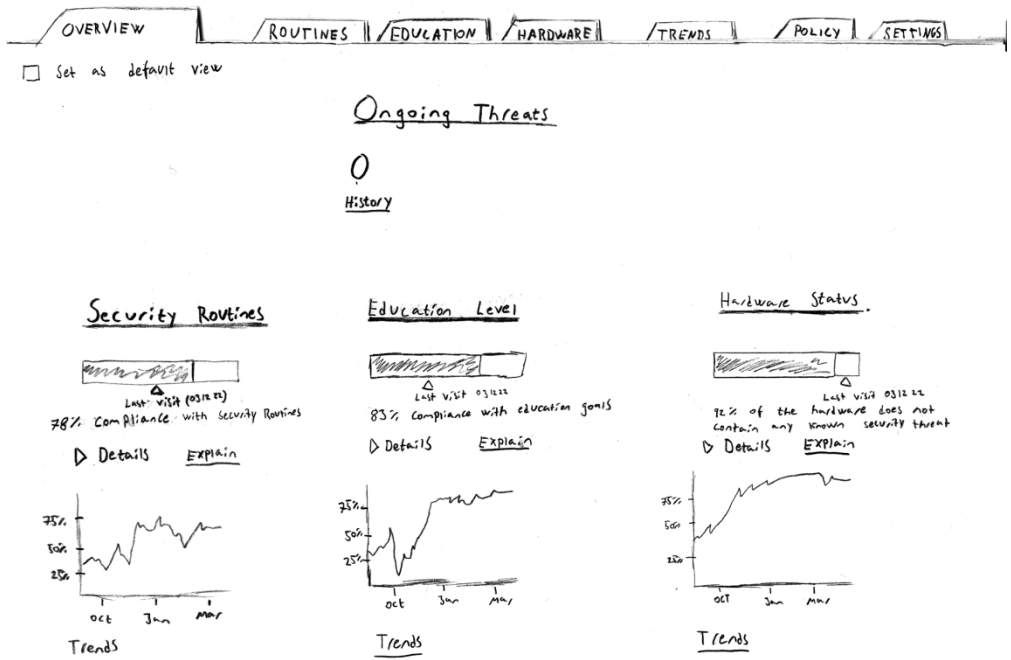 OVERVIEW
ROUTINES
EDUCATION
HARDWARE
TRENDS
POLICY
SETTINGS
Set as default view
Ongoing Threats
0
History
Security Routines
Last visit (031222)
78% Compliance with Security Routines
Details Explain
75%
50%
25%
Oct Jan Mar
Trends
Education Level
Last visit 031222
83% Compliance with education goals
Details Explain
75%
50%
25%
Oct Jan Mar
Trends
Hardware Status.
Last visit 031222
92% of the hardware does not
contain any known security threat
Details Explain
75%
50%
25%
OCT Jan Mar
Trends